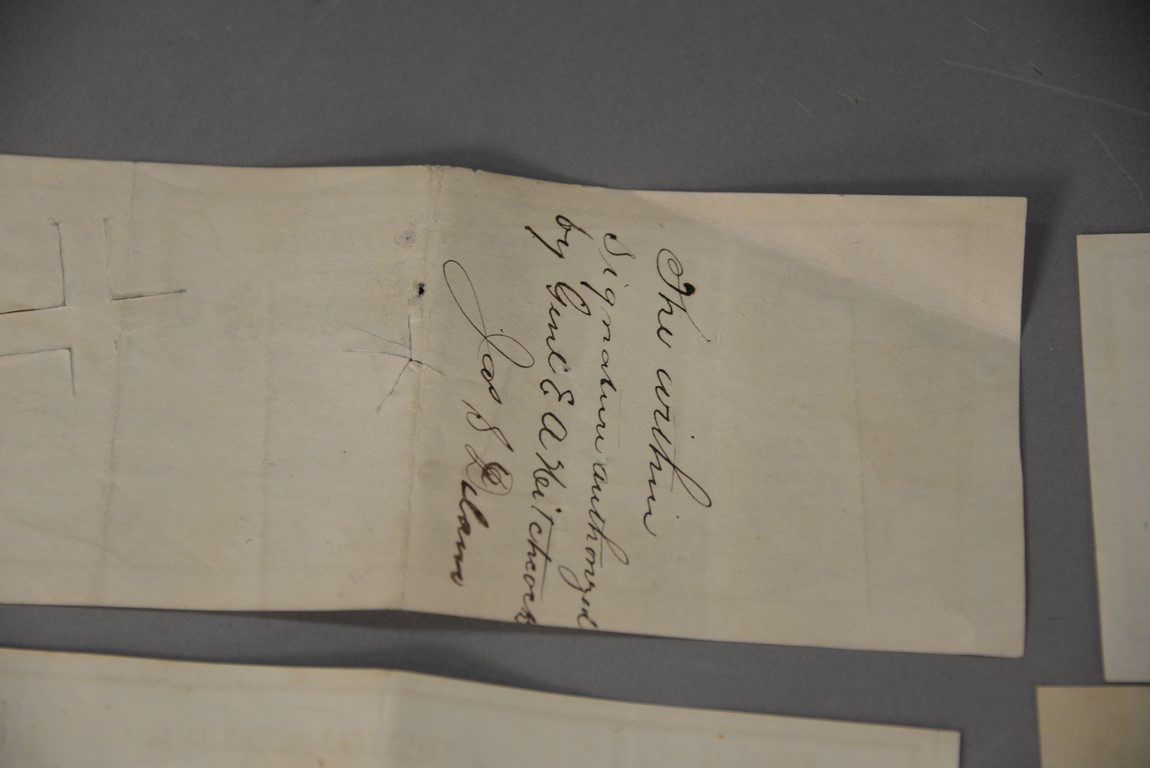 The within
Signature authorized
by Genl E A Heitchcock
Jas S Delano